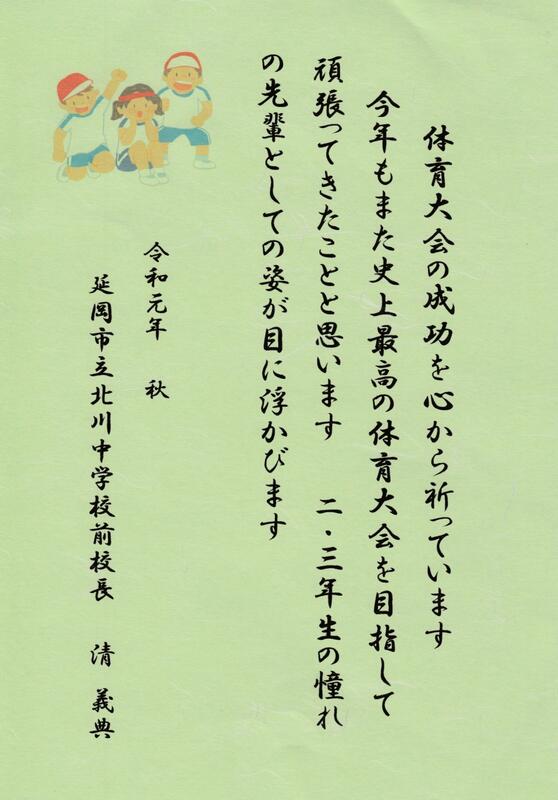 体育大会の成功を心から祈っています
今年もまた史上最高の体育大会を目指して
頑張ってきたことと思います　二・三年生の憧れ
の先輩としての姿が目に浮かびます
令和元年　秋
延岡市立北川中学校前校長　清　義典